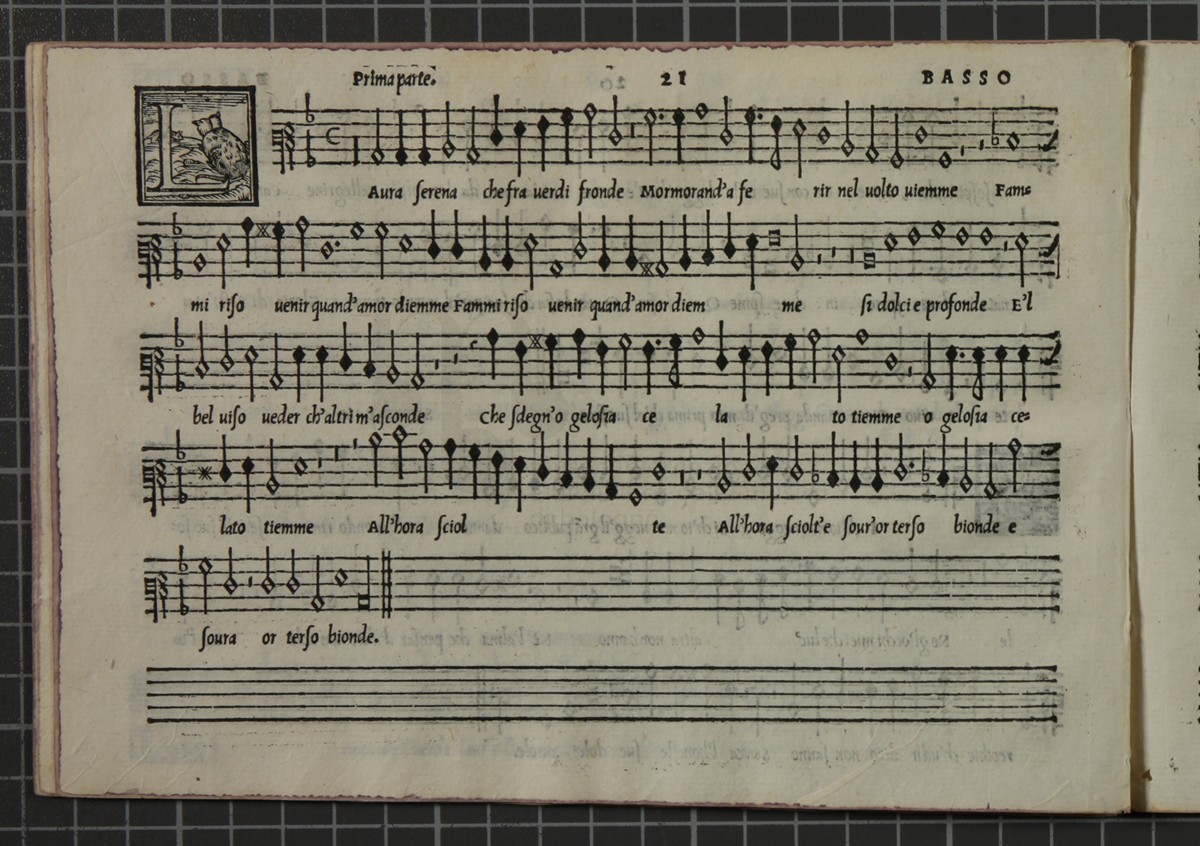 Prima parte. 21 BASSO
L Aura serena che fra uerdi fronde Mormorand'a fe rir nel uolto uiemme Fam=
mi riso uenir quand'amor diemme Fammi riso uenir quand'amor diem me si dolci e profonde E'l
bel uiso ueder ch'altri m'asconde Che sdegn'o gelosia ce la to tiemme o gelosia ce=
lato tiemme All'hora sciol te All'hora sciolt'e sour'or terso bionde e
soura or terso bionde.